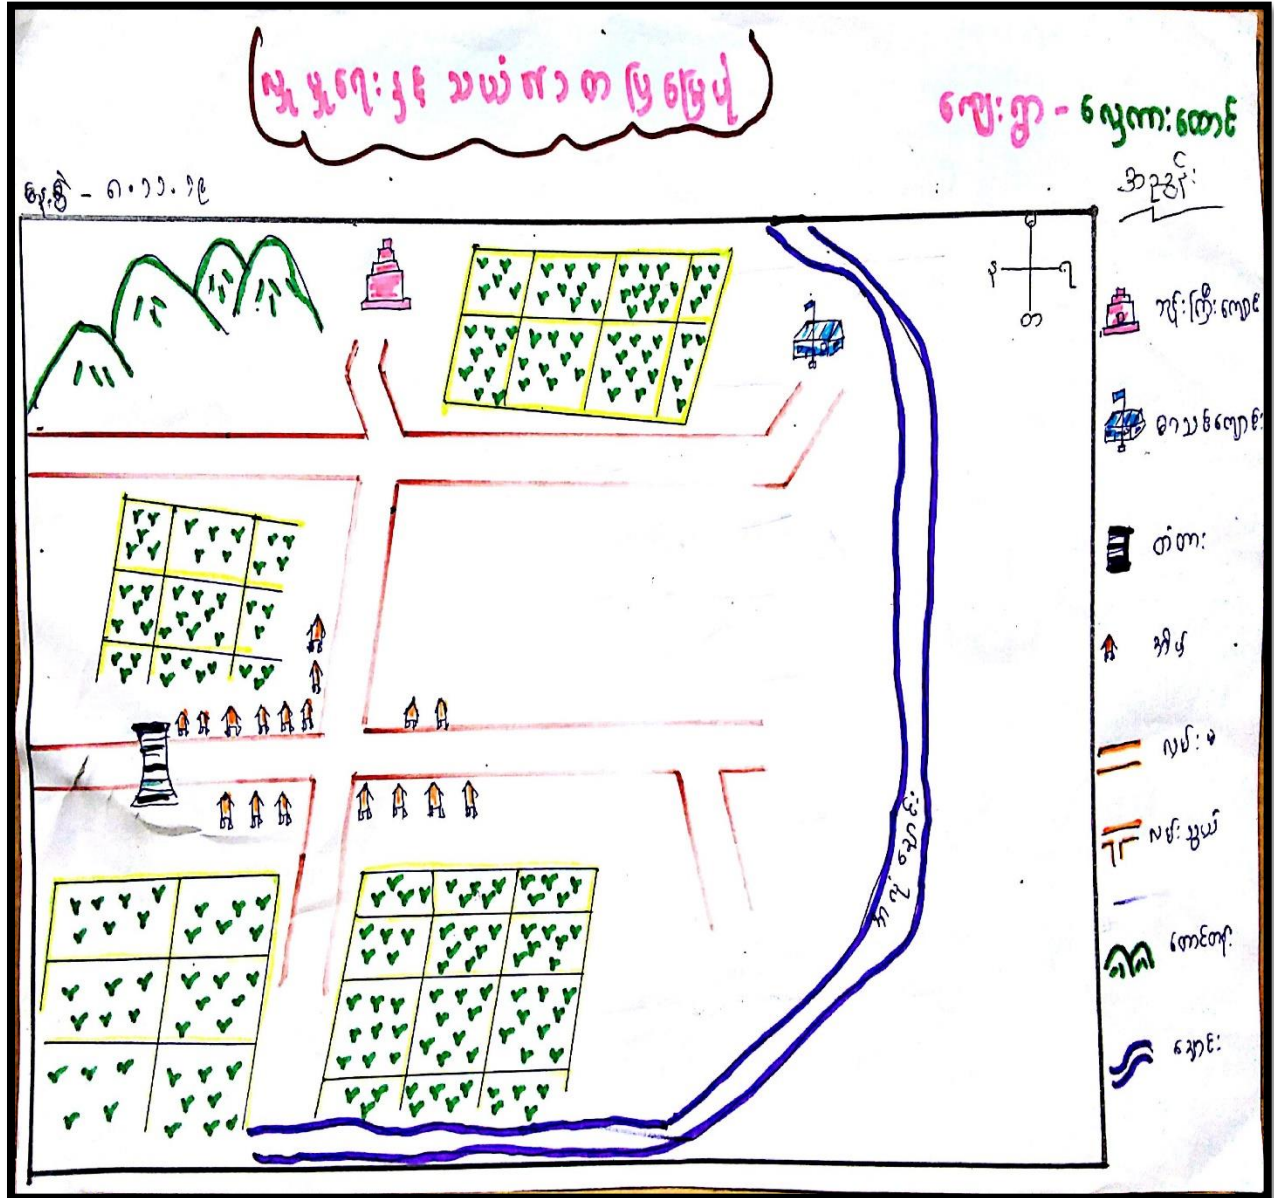 လူမှုရေးနှင့် သယံဇာတပြမြေပုံ
ကျေးရွာ - လှေကားထောင်
နေ့စွဲ - ၈.၁၁.၁၉
အညွှန်း
မ
န
ရ
တ
ဘုန်းကြီးကျောင်း
စာသင်ကျောင်း
တံတား
အိမ်
လမ်းမ
လမ်းသွယ်
တောင်တန်း
ချောင်း
ချောင်း